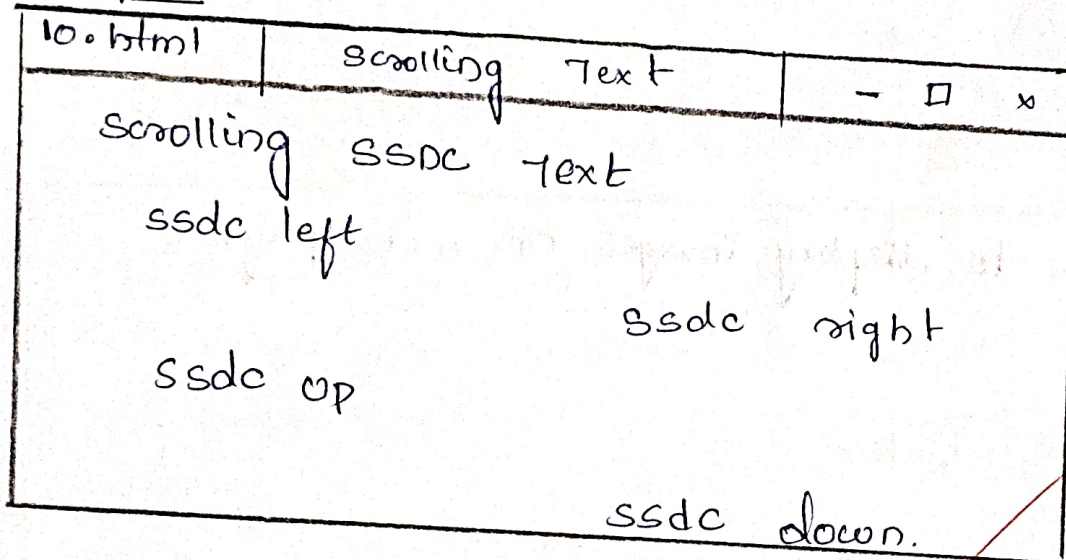 10.html Scrolling Text - □ x
Scrolling SSDC Text
ssdc left
ssdc right
ssdc up
ssdc down.